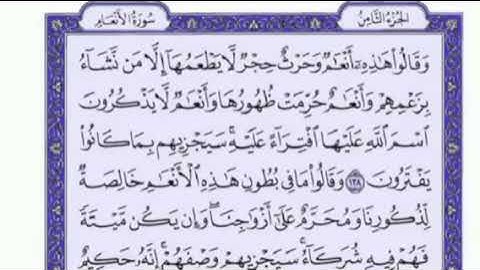 سُورَةُ الأَنْعَامِ
الجُزْءُ الثَّامِنُ
وَقَالُوا۟ هَـٰذِهِۦٓ أَنْعَـٰمٌ وَحَرْثٌ حِجْرٌ لَّا يَطْعَمُهَآ إِلَّا مَن نَّشَآءُ
بِزَعْمِهِمْ وَأَنْعَـٰمٌ حُرِّمَتْ ظُهُورُهَا وَأَنْعَـٰمٌ لَّا يَذْكُرُونَ
ٱسْمَ ٱللَّهِ عَلَيْهَا ٱفْتِرَآءً عَلَيْهِ ۚ سَيَجْزِيهِم بِمَا كَانُوا۟
يَفْتَرُونَ ١٣٨ وَقَالُوا۟ مَا فِى بُطُونِ هَـٰذِهِ ٱلْأَنْعَـٰمِ خَالِصَةٌ
لِّذُكُورِنَا وَمُحَرَّمٌ عَلَىٰٓ أَزْوَٰجِنَا ۖ وَإِن يَكُن مَّيْتَةً
فَهُمْ فِيهِ شُرَكَآءُ ۚ سَيَجْزِيهِمْ وَصْفَهُمْ ۚ إِنَّهُۥ حَكِيمٌ